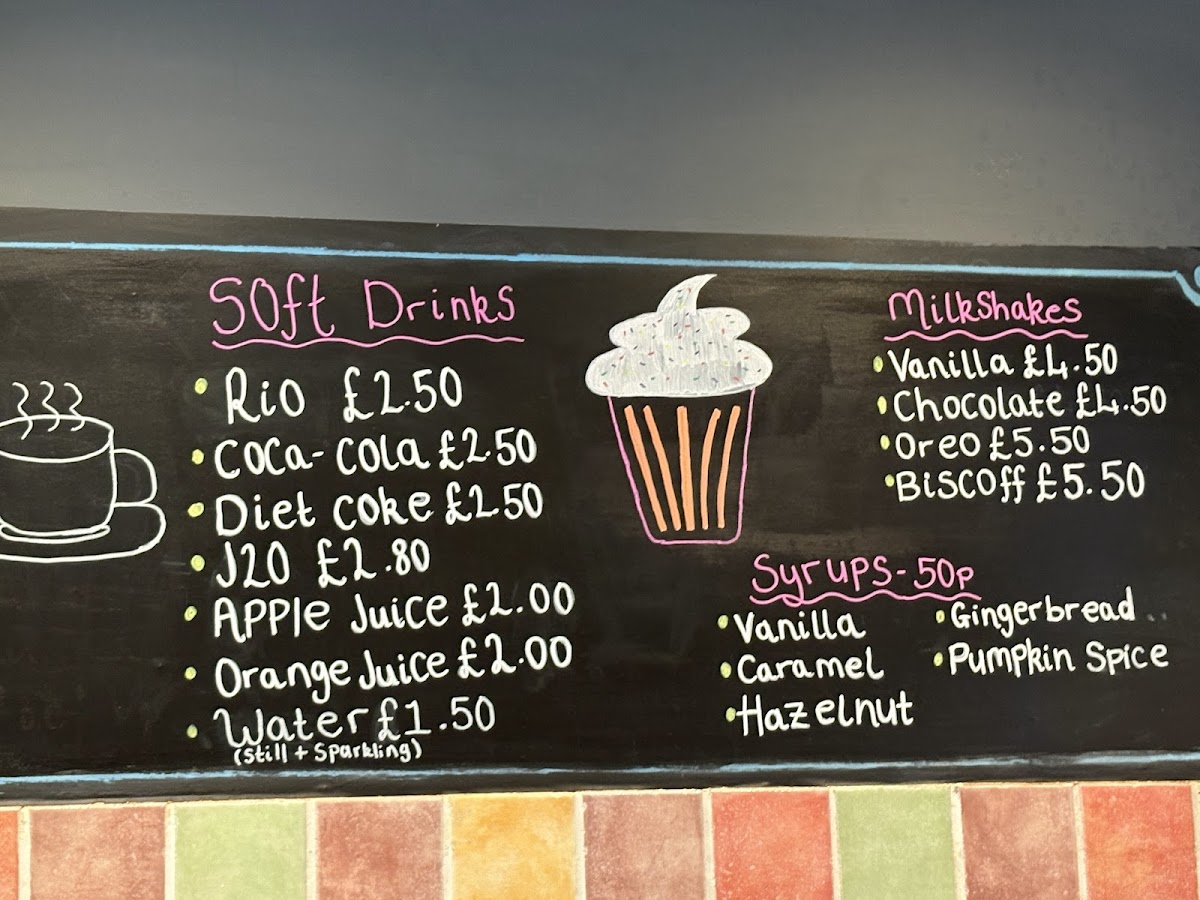 Soft Drinks
Rio £2.50
Coca-Cola £2.50
Diet Coke £2.50
J20 £2.80
Apple Juice £2.00
Orange Juice £2.00
Water £1.50
(Still + Sparkling)
Milkshakes
Vanilla £4.50
Chocolate £4.50
Oreo £5.50
Biscoff £5.50
Syrups - 50p
Vanilla
Caramel
Hazelnut
Gingerbread
Pumpkin Spice